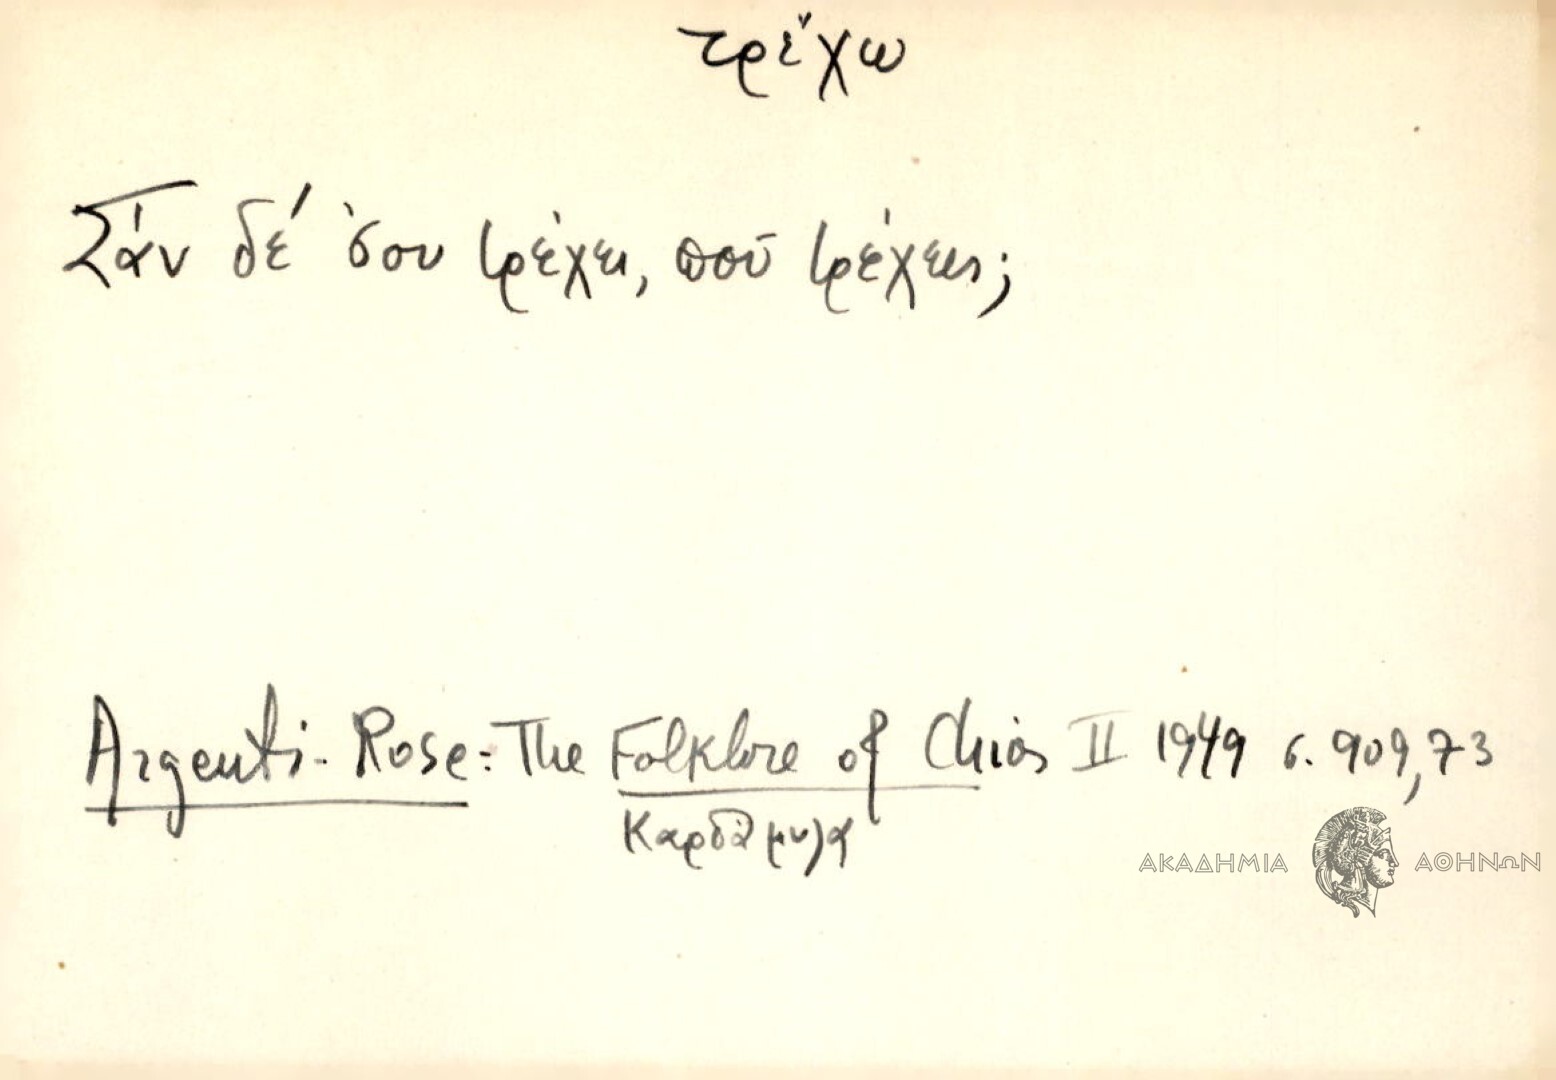 τρέχω
Σάν δέ σου τρέχει, ποῦ τρέχεις;
Argenti-Rose: The Folklore of Chios II 1949 σ. 909,73
Καρδάμυλα
ΑΚΑΔΗΜΙΑ ΑΘΗΝΩΝ